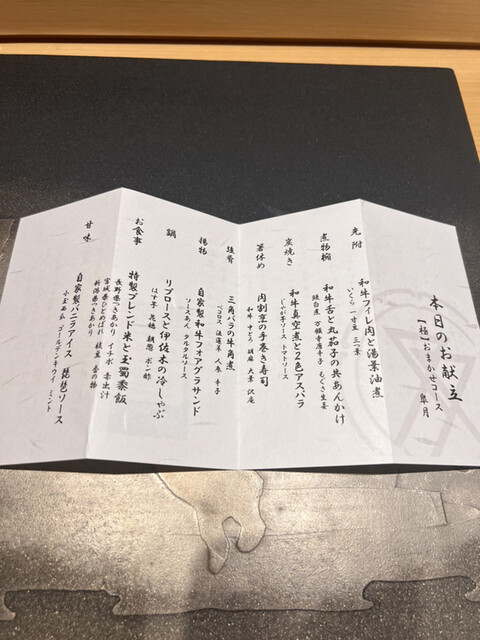 本日のお献立
【極】おまかせコース 皐月
先附
和牛フィレ肉と湯葉油煮
いくら 一寸豆 三つ葉
煮物椀
和牛舌と丸茄子の共あんかけ
蛙白煮 万願寺唐辛子 もぐさ生姜
炭焼き
和牛真空煮と2色アスパラ
じゃが芋ソース トマトソース
箸休め
肉割烹の手巻き寿司
和牛 中とろ 胡麻 大葉 沢庵
強肴
三角バラの牛角煮
ペコロス 法蓮草 人参 辛子
揚物
自家製和牛フォアグラサンド
ソースあん タルタルソース
鍋
リブロースと伊佐木の冷しゃぶ
はす芋 花穂 朝葱 ポン酢
お食事
特製ブレンド米と玉蜀黍飯
長野県つきあかり イチボ 赤出汁
宮城県ひとめぼれ 枝豆 香の物
新潟県つきあかり
甘味
自家製バニラアイス 琵琶ソース
小玉西瓜 ゴールデンキウイ ミント